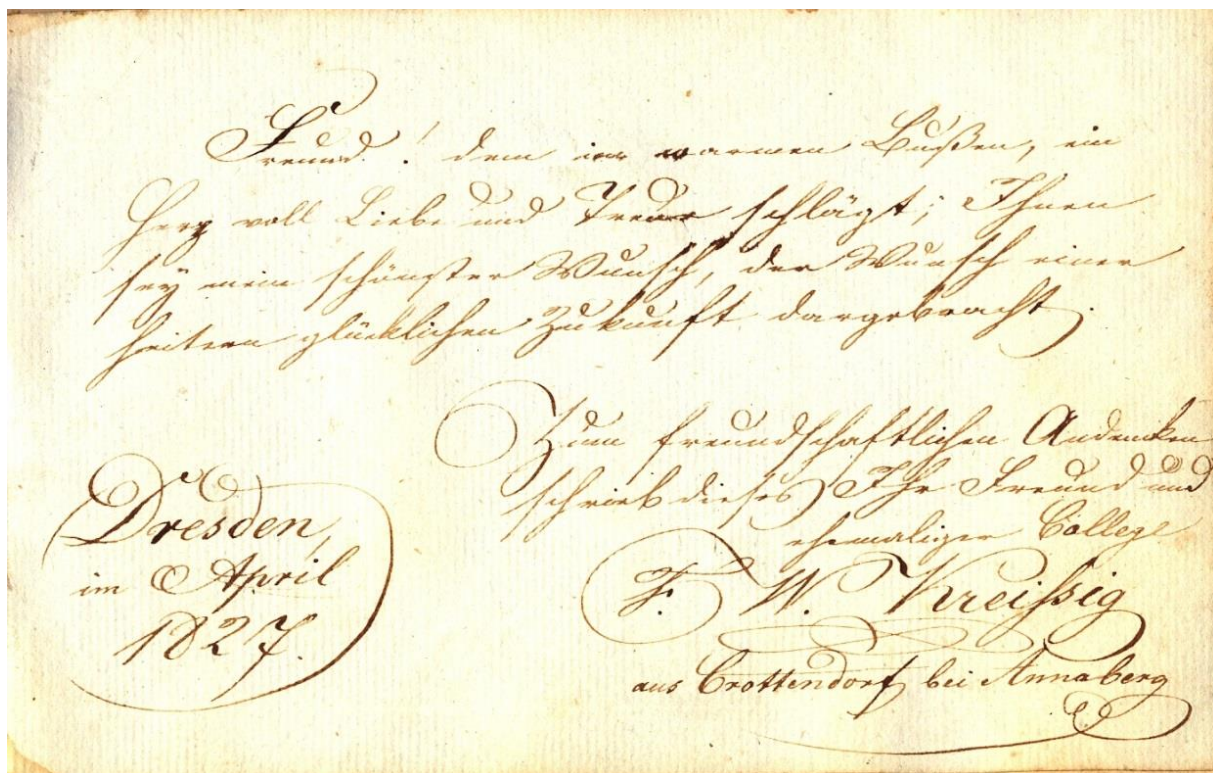 Freund! dem im warmen Bußen, ein
Herz voll Liebe und Treue schlägt; Ihnen
sey mein schönster Wunsch, der Wunsch einer
heitern glücklichen Zukunft dargebracht.
Zum freundschaftlichen Andenken
schrieb dieses Ihr Freund und
ehemaliger College
F. W. Kreißig
aus Crottendorf bei Annaberg
Dresden,
im April
1827.